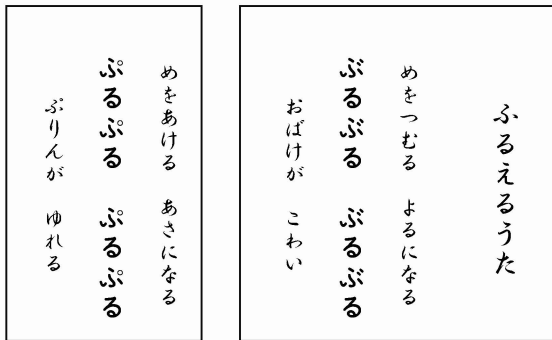 ふるえるうた
めをつむる　よるになる
ぶるぶる　ぶるぶる
おばけが　こわい
めをあける　あさになる
ぷるぷる　ぷるぷる
ぷりんが　ゆれる